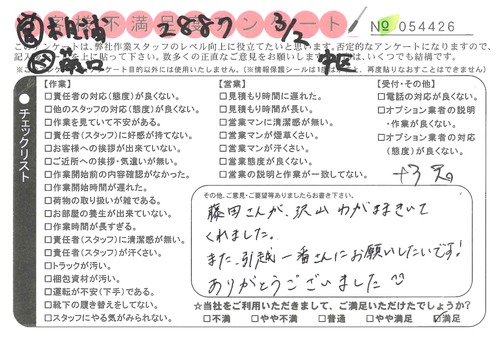 お客様不満足度アンケート
2887 3/2
№ 054426
このアンケートは、弊社作業スタッフのレベル向上に役立てたいと思います。否定的なアンケートになりますので、
記入 上に貼って下さい。数多くの正直なご意見をお願い いつでも結構です。
アンケート目的以外には使用いたしません。(※情報保護シールは1 、再度貼りなおすことはできません)
チェックリスト
【作業】
□責任者の対応(態度)が良くない。
□他のスタッフの対応(態度)が良くない。
□作業を見ていて不安がある。
□責任者(スタッフ)に好感が持てない。
□お客様への挨拶が出来ていない。
□ご近所への挨拶・気遣いが無い。
□作業開始前の内容確認がなかった。
□作業開始時間が遅れた。
□荷物の取り扱いが雑である。
□お部屋の養生が出来ていない。
□作業時間が長すぎる。
□責任者(スタッフ)に清潔感が無い。
□責任者(スタッフ)が汗くさい。
□トラックが汚い。
□梱包資材が汚い。
□運転が不安(下手)である。
□靴下の履き替えをしてない。
□スタッフにやる気がみられない。
【営業】
□見積もり時間に遅れた。
□見積もり時間が長い。
□営業マンに清潔感が無い。
□営業マンが煙草くさい。
□営業マンが汗くさい。
□営業態度が良くない。
□営業の説明と作業が一致してない。
【受付・その他】
□電話の対応が良くない。
□オプション業者の説明
・作業が良くない。
□オプション業者の対応
(態度)が良くない。
その他、ご意見・ご要望等ありましたらお書き下さい。
藤田さんが、沢山わがままきいて
くれました。
また、引越一番さんにお願いしたいです!
ありがとうございました
☆当社をご利用いただきまして、ご満足いただけたでしょうか?
□不満 □やや不満 □普通 □やや満足 ☑満足